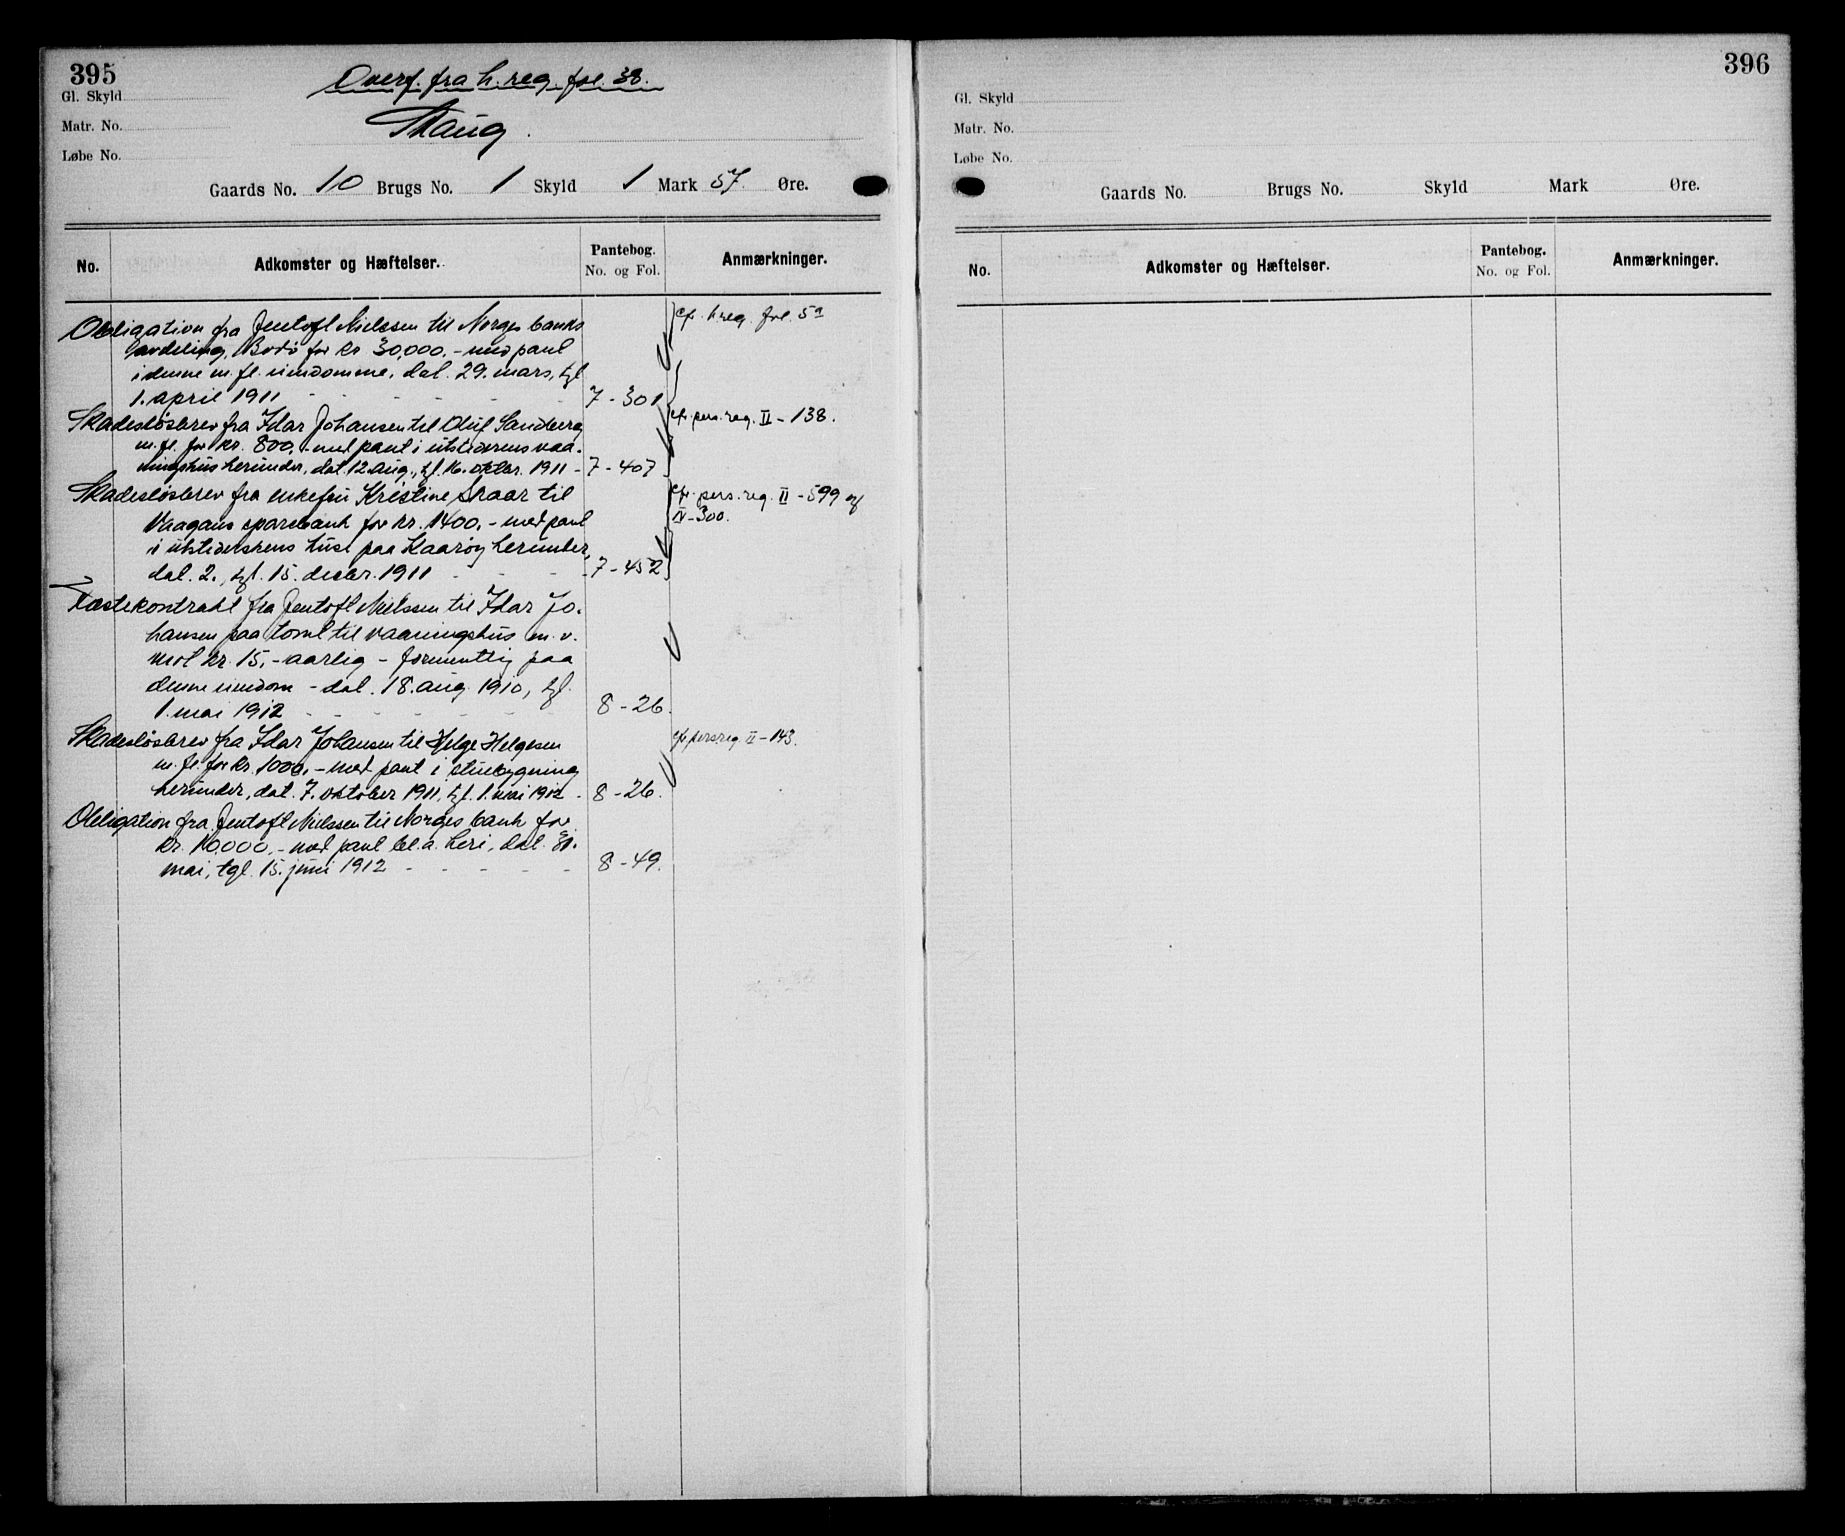 395
Overf. fra h. reg. fol. 38.
Gl. Skyld
Matr. No.
Skaug.
Løbe No.
Gaards No. 10 Brugs No. 1 Skyld 1 Mark 57. Øre.
No. Adkomster og Hæftelser. Pantebog. No. og Fol. Anmærkninger.
Obligation fra Jentoft Nielssen til Norges banks cfr. h.reg. fol. 5a
avdeling, Bodø for kr 30,000.- med pant
i denne m. fl. eiendomme, dat. 29. mars, tgl
1. april 1911 - - - - - 7 - 301
Skadesløsbrev fra Idar Johansen til Oluf Sandberg cfr. pers. reg. II - 138.
m. fl. for kr. 800,- med pant i utstederens vaa-
ningshus herunder, dat. 12. aug., tgl. 16. oktbr. 1911 - 7 - 407
Skadesløsbrev fra enkefru Kristine Skaar til cfr. pers. reg. II - 599 og
Vaagans sparebank for kr. 1400.- med pant IV - 300.
i utstederskens hus paa Kaarøy herunder,
dat. 2., tgl. 15. decbr. 1911 - - - 7 - 452
Fæstekontrakt fra Jentoft Nielssen til Idar Jo-
hansen paa tomt til vaaningshus m. v.
mot kr. 15,- aarlig - formentlig paa
denne eiendom - dat. 18. aug. 1910, tgl.
1. mai 1912 - - - - - - 8 - 26.
Skadesløsbrev fra Idar Johansen til Helge Helgesen cfr. pers.reg II - 143.
m. fl. for kr. 1000,- med pant i stuebygning
herunder, dat. 7. oktober 1911, tgl. 1. mai 1912 - 8 - 26.
Obligation fra Jentoft Nielssen til Norges bank for
kr. 10,000.- med pant bl. a. heri, dat. 31.
mai, tgl. 15. juni 1912 - - - - - 8 - 49.
396
Gl. Skyld
Matr. No.
Løbe No.
Gaards No. Brugs No. Skyld Mark Øre.
No. Adkomster og Hæftelser. Pantebog. No. og Fol. Anmærkninger.